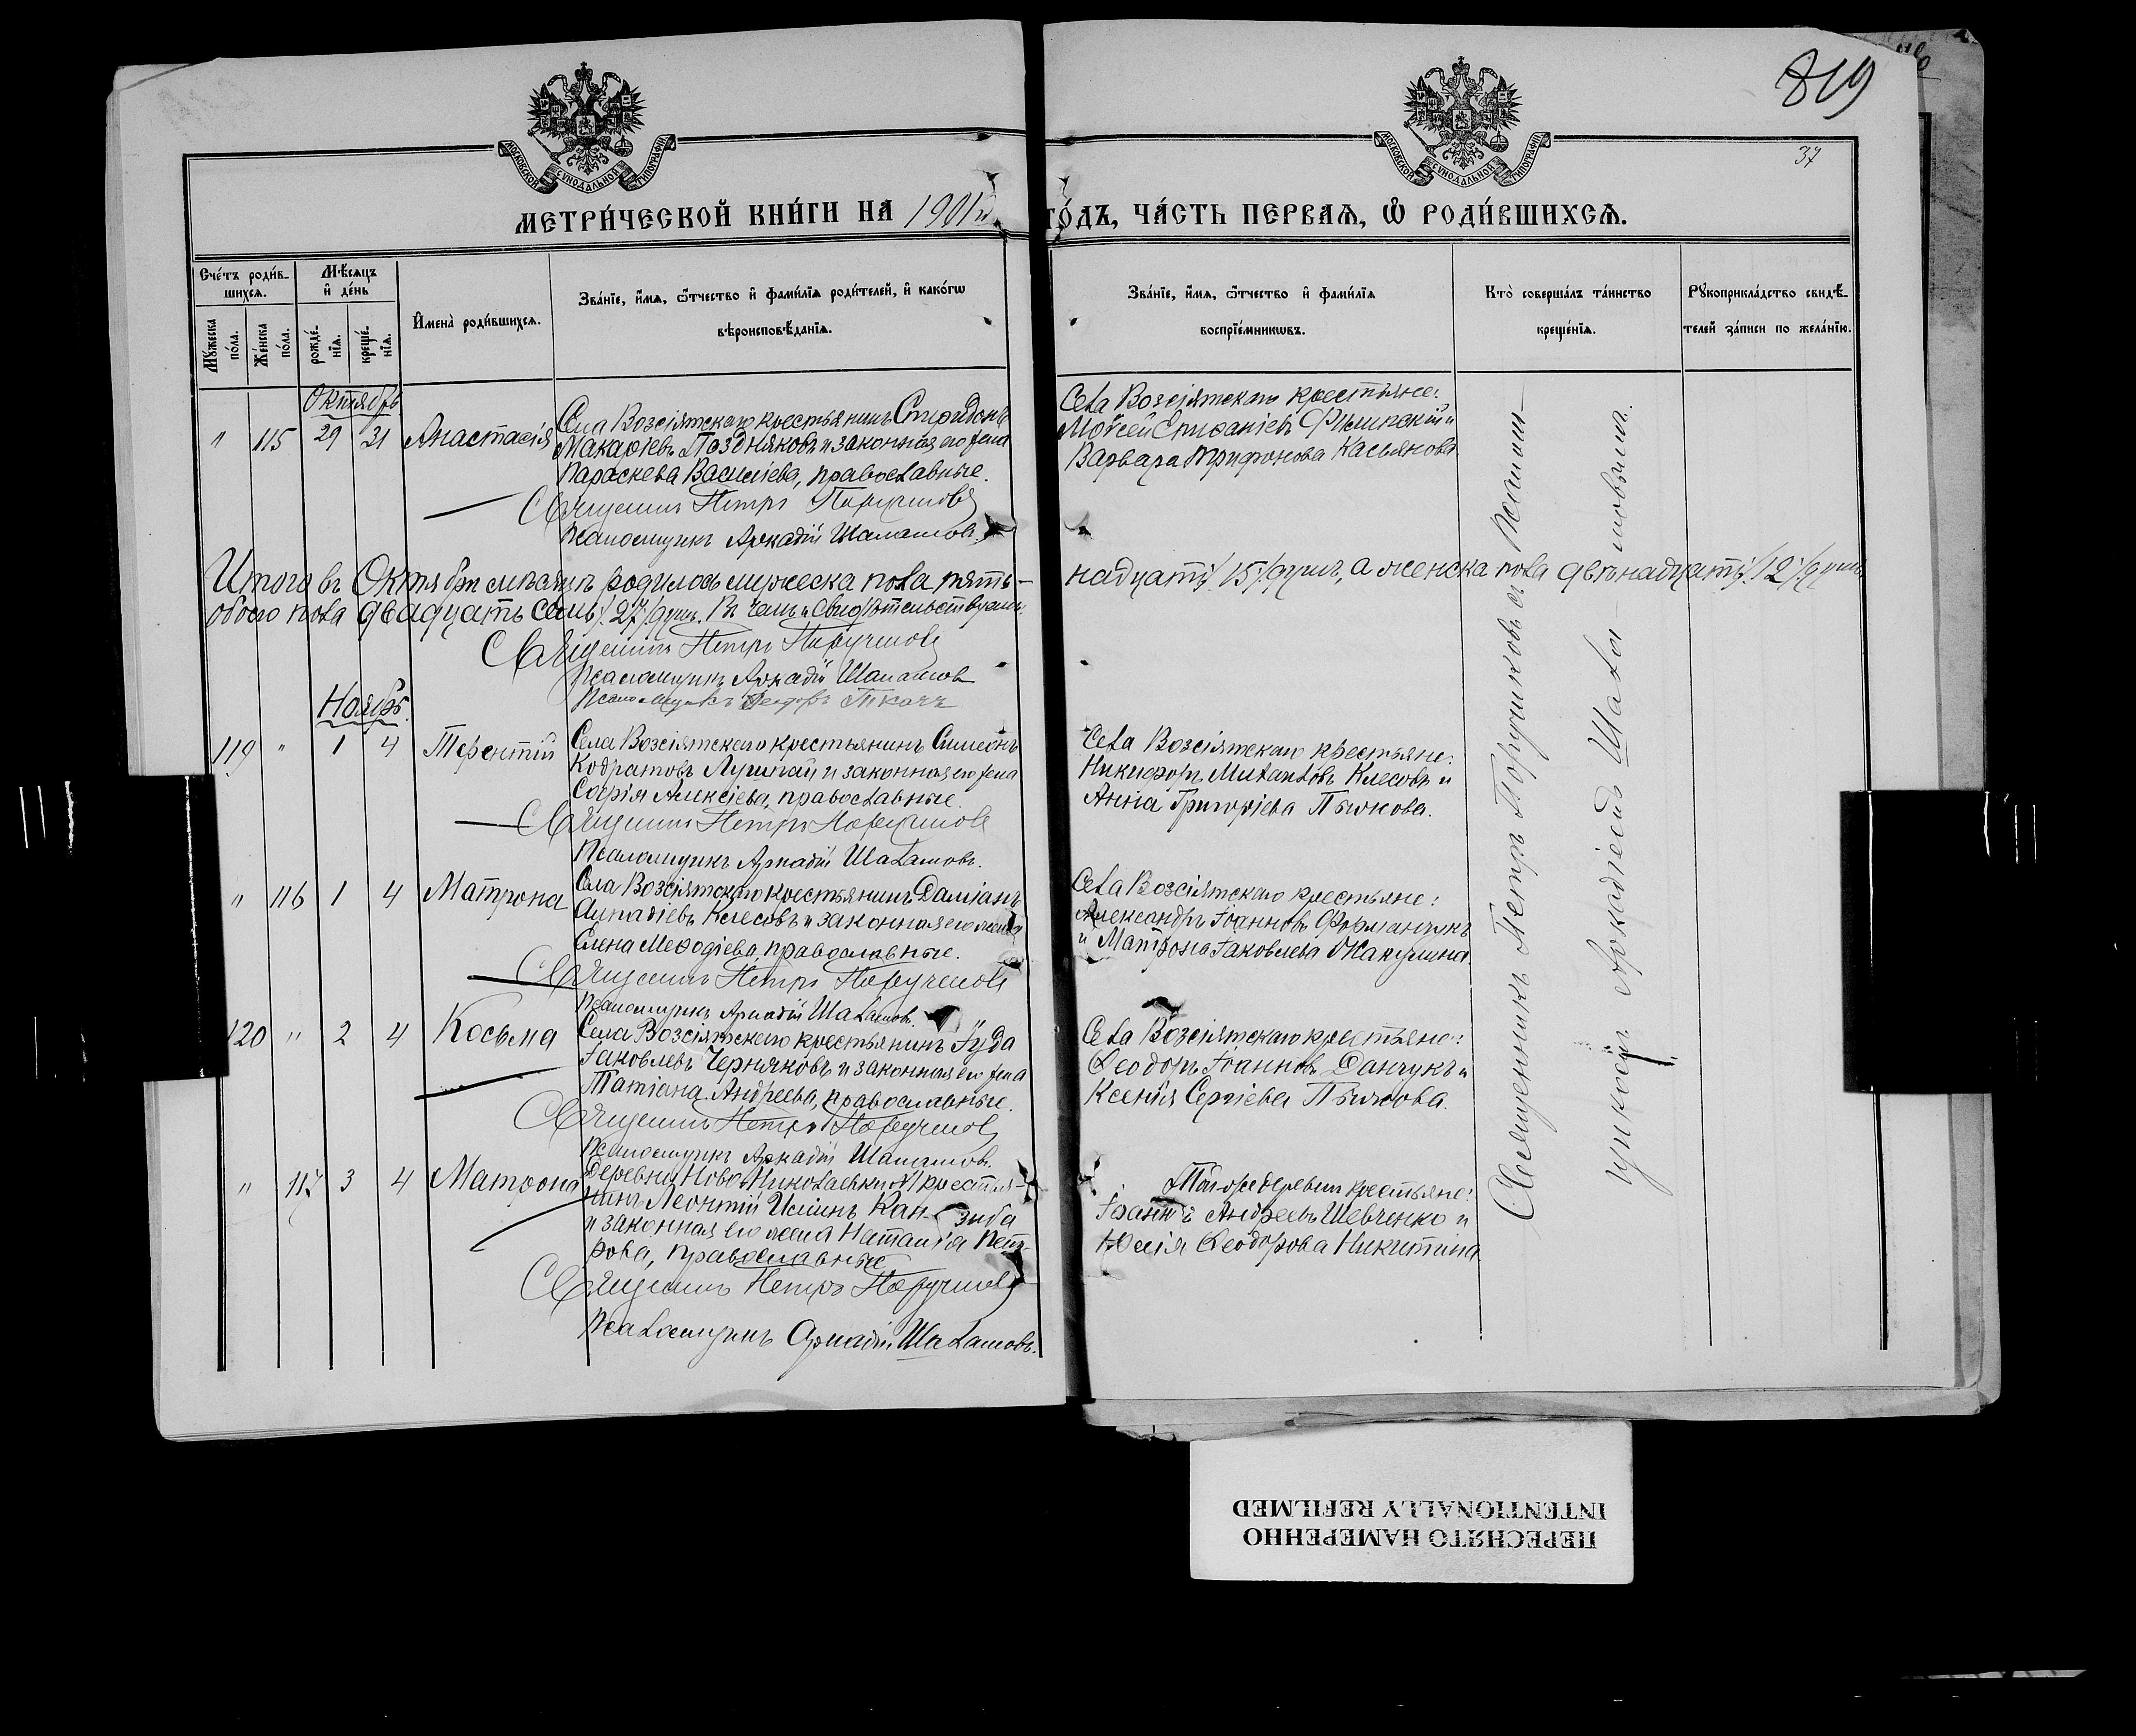 819
37
МОСКОВСКОЙ СѴНОДАЛЬНОЙ ТИПОГРАФІИ
МОСКОВСКОЙ СѴНОДАЛЬНОЙ ТИПОГРАФІИ
МЕТРИ́ЧЕСКОЙ КНИ́ГИ НА 1901й
ГО́ДЪ, ЧА́СТЬ ПЕРВАѦ, Ѽ РОДИ́ВШИХСѦ.
Сче́тъ роди́в-
шихсѧ.
Мꙋжеска по́ла.
Же́нска по́ла.
Мѣ́сѧцъ
и҆ де́нь
рожде́-
нїѧ.
креще́-
нїѧ.
И҆мена̀ роди́вшихсѧ.
Зва́нїе, и҆́мѧ, ѻ҆́тчество и҆ фами́лїѧ роди́телей, и҆ како́гѡ
вѣроисповѣ́данїѧ.
Зва́нїе, и҆́мѧ, ѻ҆́тчество и҆ фами́лїѧ
воспрїе́мникѡвъ.
Кто̀ соверша́лъ та́инство
креще́нїѧ.
Рꙋкоприкла́дство свидѣ́-
телей за́писи по жела́нїю.
Октябрь
" 115 29 31 Анастасія
Села Возсіятскаго крестьянинъ Спиридонъ
Макаріевъ Поздняковъ и законная его жена
Параскева Васильева, православные.
Священникъ Петръ Поручиковъ
Псаломщикъ Аркадій Шаламовъ.
Села Возсіятскаго крестьяне:
Мойсей Стефаніевъ и
Варвара Трифонова Касьянова
Итого въ Октябрѣ мѣсяцѣ родилось мужеска пола пять-
надцать /15/ душъ, а женска пола двѣнадцать /12/ душъ
обоего пола двадцать семь /27/ душъ. Въ чемъ и свидѣтельствуемъ:
Священникъ Петръ Поручиковъ
Псаломщикъ Аркадій Шаламовъ
Псаломщикъ Ѳеодоръ Ткачъ
Ноябрь.
119 " 1 4 Терентій
Села Возсіятскаго крестьянинъ Симеонъ
Кодратовъ и законная его жена
Софія Алексіева, православные.
Священникъ Петръ Поручиковъ
Псаломщикъ Аркадій Шаламовъ.
Села Возсіятскаго крестьяне:
Никифоръ Михаиловъ Клесовъ и
Анна Григоріева Пѣшкова.
" 116 1 4 Матрона
Села Возсіятскаго крестьянинъ Даміанъ
Клесовъ и законная его жена
Елена Меѳодіева, православные.
Священникъ Петръ Поручиковъ
Псаломщикъ Аркадій Шаламовъ.
Села Возсіятскаго крестьяне:
Александръ Іоанновъ Форманчукъ
и Матрона Іаковлева Жакулина
120 " 2 4 Косьма
Села Возсіятскаго крестьянинъ Іуда
Іаковлевъ Черняковъ и законная его жена
Татіана Андреева, православные.
Священникъ Петръ Поручиковъ
Псаломщикъ Аркадій Шаламовъ.
Села Возсіятскаго крестьяне:
Ѳеодоръ Іоанновъ Данчукъ и
Ксенія Сергіева Пѣшкова.
" 117 3 4 Матрона
Деревни Ново-Николаевки крестья-
нинъ Леонтій Исіинъ Кан- зиба
и законная его жена Наталія Пет-
рова, православные
Священникъ Петръ Поручиковъ
Псаломщикъ Аркадій Шаламовъ.
Той-же деревни крестьяне:
Іоаннъ Андреевъ Шевченко и
Юлія Ѳеодорова Никитина
Священникъ Петръ Поручиковъ съ Псалом-
щикомъ Аркадіемъ Шала-
мовымъ.
ПЕРЕСНЯТО НАМЕРЕННО
INTENTIONALLY REFILMED